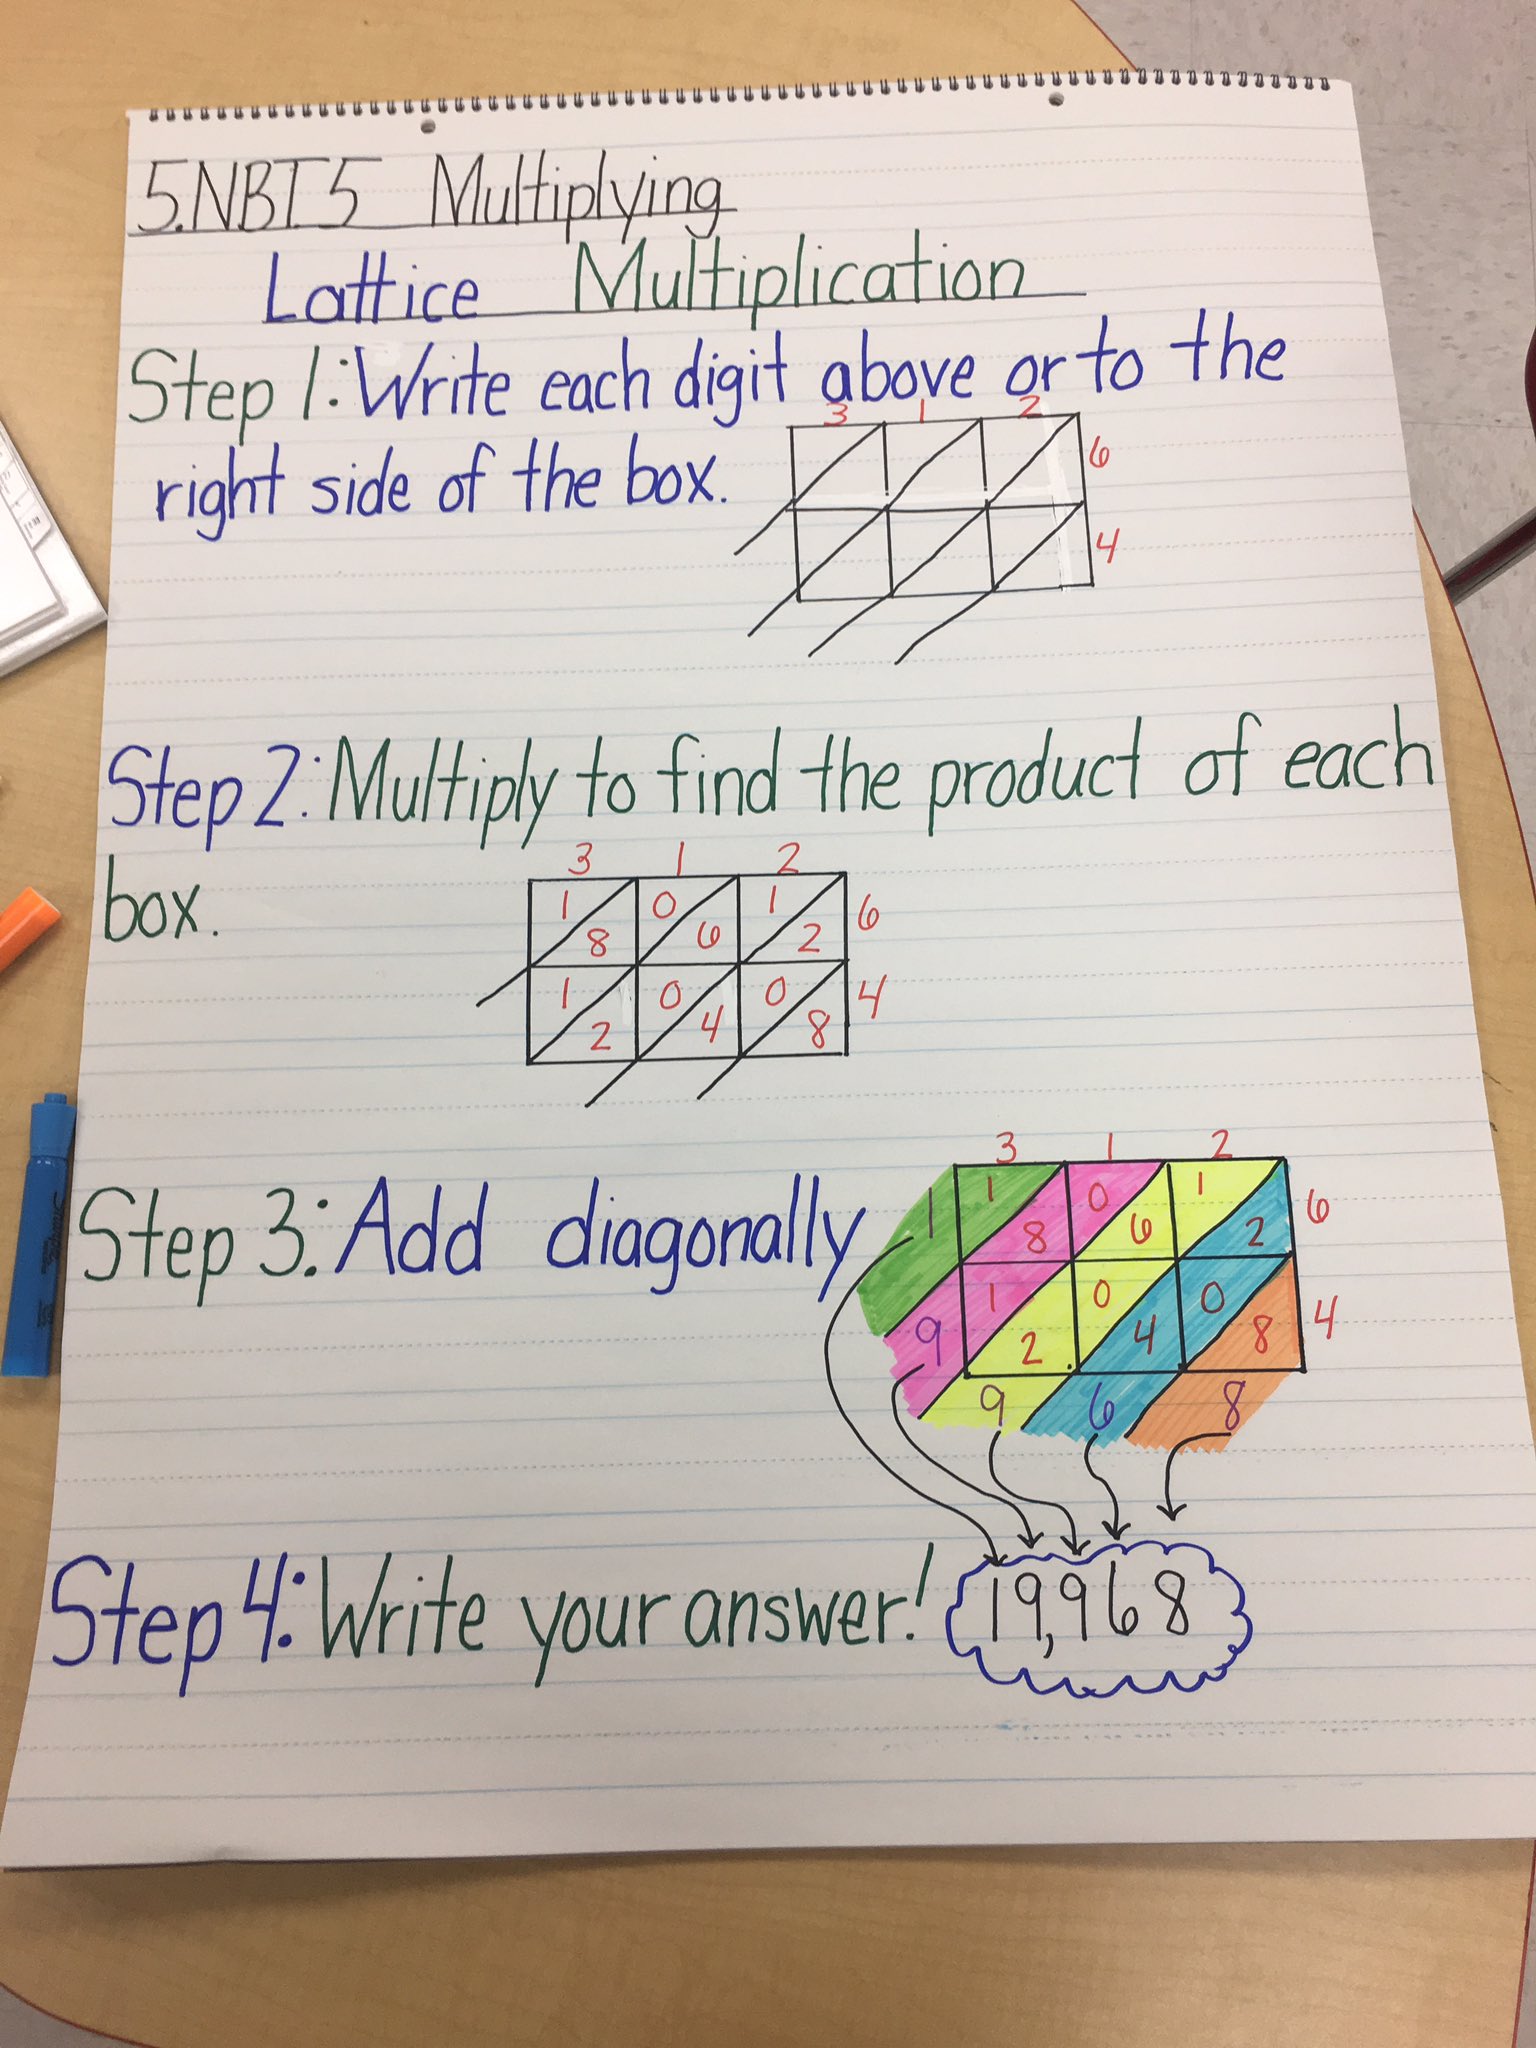 5.NBT.5 Multiplying
Lattice Multiplication
Step 1: Write each digit above or to the
3 1 2
right side of the box.
6
4
Step 2: Multiply to find the product of each
box.
3 1 2
1 0 1
8 6 2
6
1 0 0
2 4 8
4
Step 3: Add diagonally
3 1 2
1 1 0 1
8 6 2
6
1 0 0
9 2 4 8
4
9 6 8
Step 4: Write your answer! 19,968